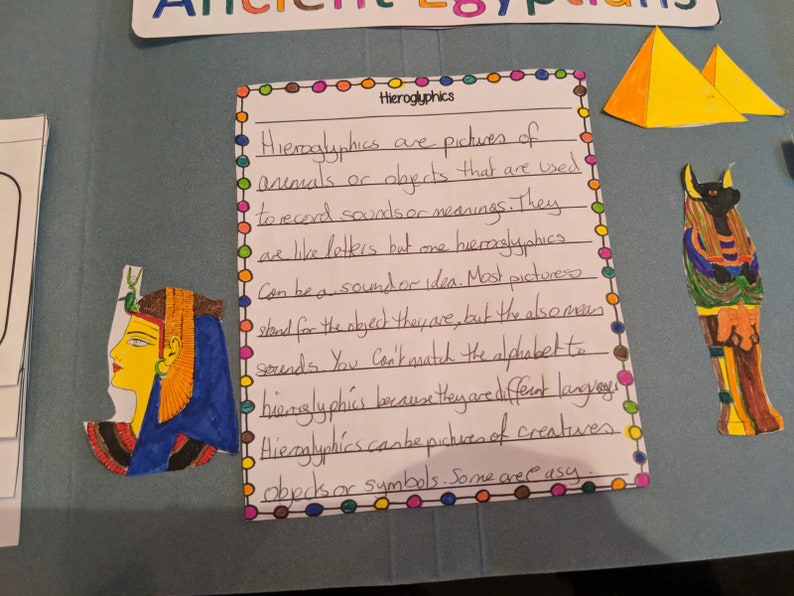 Ancient Egyptians
Hieroglyphics
Hieroglyphics are pictures of
animals or objects that are used
to record sounds or meanings. They
are like letters but one hieroglyphics
can be a sound or idea. Most picturess
stand for the object they are, but the also mean
sounds. You Can't match the alphabet to
hieroglyphics because they are different languages
Hieroglyphics can be pictures of creatures
objects or symbols. Some are easy.